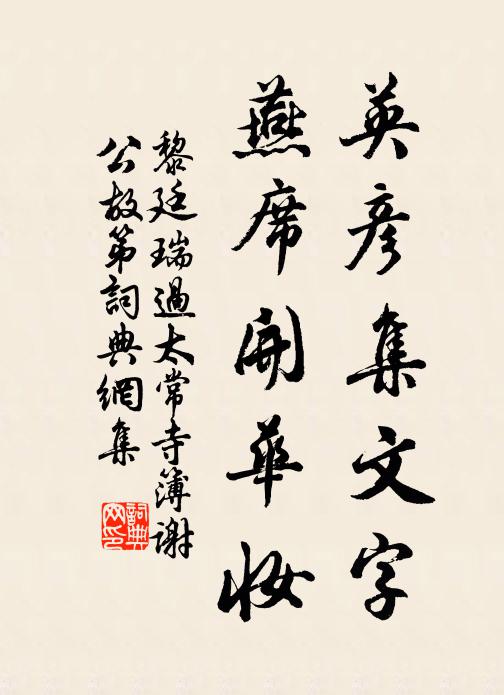 英彦集文字
燕席開華妝
黎廷瑞過太常寺簿謝
公故第詞典網集
詞典
网印